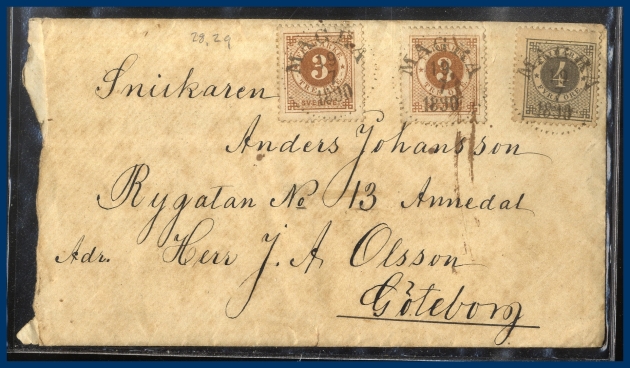 28, 29
3
SVERIGE
MAGRA
1890
MAGRA
1890
4
MAGRA
1890
Snickaren
Anders Johansson
Rygatan No 13 Annedal
Adr. Herr J. A Olsson
Göteborg